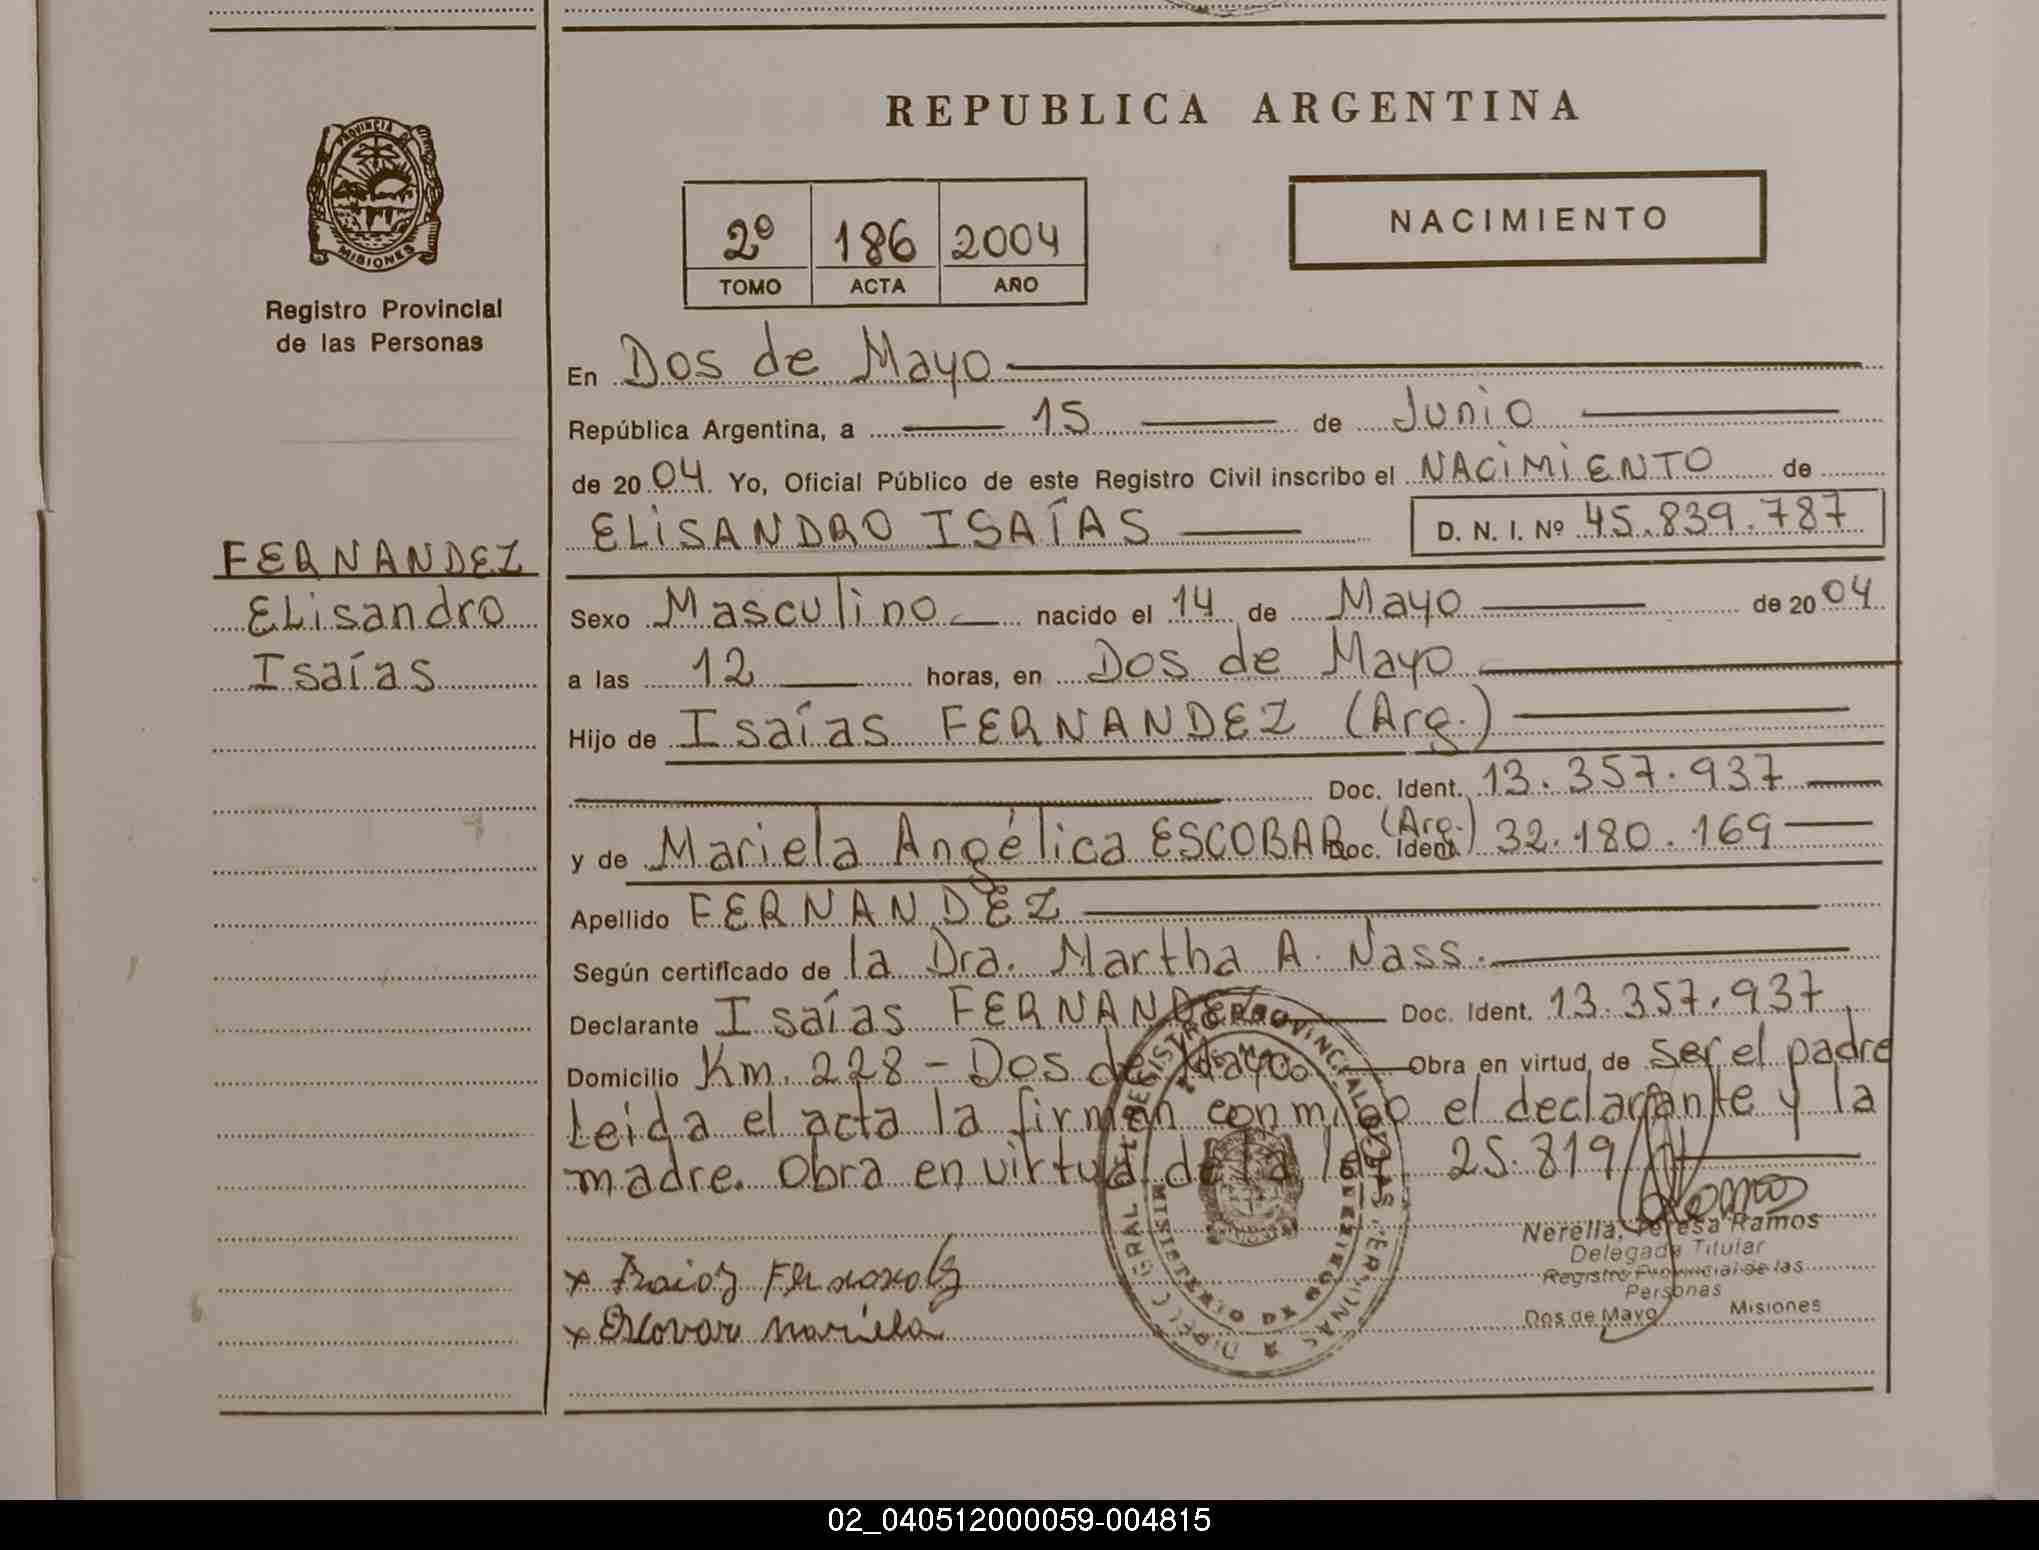 REPUBLICA ARGENTINA
PROVINCIA DE
MISIONES
Registro Provincial
de las Personas
2º 186 2004
TOMO ACTA AÑO
NACIMIENTO
En Dos de Mayo
República Argentina, a 15 de Junio
de 2004. Yo, Oficial Público de este Registro Civil inscribo el NACIMIENTO de
ELISANDRO ISAÍAS D. N. I. Nº 45.839.787
FERNANDEZ
Elisandro
Isaías
Sexo Masculino nacido el 14 de Mayo de 2004
a las 12 horas, en Dos de Mayo
Hijo de Isaías FERNANDEZ (Arg.)
Doc. Ident. 13.357.937
y de Mariela Angélica ESCOBAR (Arg.) Doc. Ident. 32.180.169
Apellido FERNANDEZ
Según certificado de la Dra. Martha A. Nass.
Declarante Isaías FERNANDEZ Doc. Ident. 13.357.937
Domicilio Km. 228 - Dos de Mayo Obra en virtud de ser el padre
Leida el acta la firman conmigo el declarante y la
madre. Obra en virtud de la ley 25.819
x Isaias Fernandez
x Escovar mariela
Nerella, Teresa Ramos
Delegada Titular
Registro Provincial de las
Personas
Dos de Mayo Misiones
02_040512000059-004815